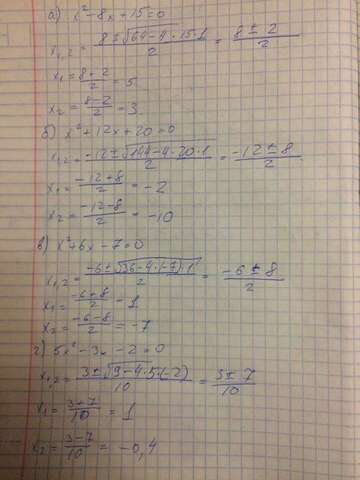 а) x² - 8x + 15 = 0
x₁,₂ = (8 ± √(64 - 4 · 15 · 1))/2 = (8 ± 2)/2
x₁ = (8 + 2)/2 = 5
x₂ = (8 - 2)/2 = 3
б) x² + 12x + 20 = 0
x₁,₂ = (-12 ± √(144 - 4 · 20 · 1))/2 = (-12 ± 8)/2
x₁ = (-12 + 8)/2 = -2
x₂ = (-12 - 8)/2 = -10
в) x² + 6x - 7 = 0
x₁,₂ = (-6 ± √(36 - 4 · (-7) · 1))/2 = (-6 ± 8)/2
x₁ = (-6 + 8)/2 = 1
x₂ = (-6 - 8)/2 = -7
г) 5x² - 3x - 2 = 0
x₁,₂ = (3 ± √(9 - 4 · 5 · (-2)))/10 = (3 ± 7)/10
x₁ = (3 + 7)/10 = 1
x₂ = (3 - 7)/10 = -0,4